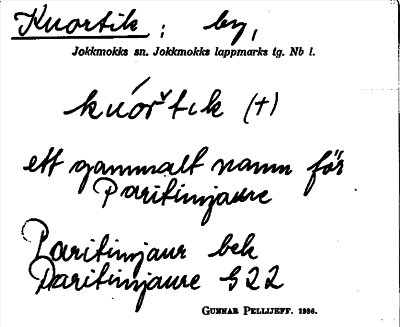 Kuortik : by,
Jokkmokks sn. Jokkmokks lappmarks tg. Nb l.
kúořtık (+)
ett gammalt namn för
Paritimjaure
Paritimjaur bek
Paritimjaure G22
GUNNAR PELLIJEFF. 1936.